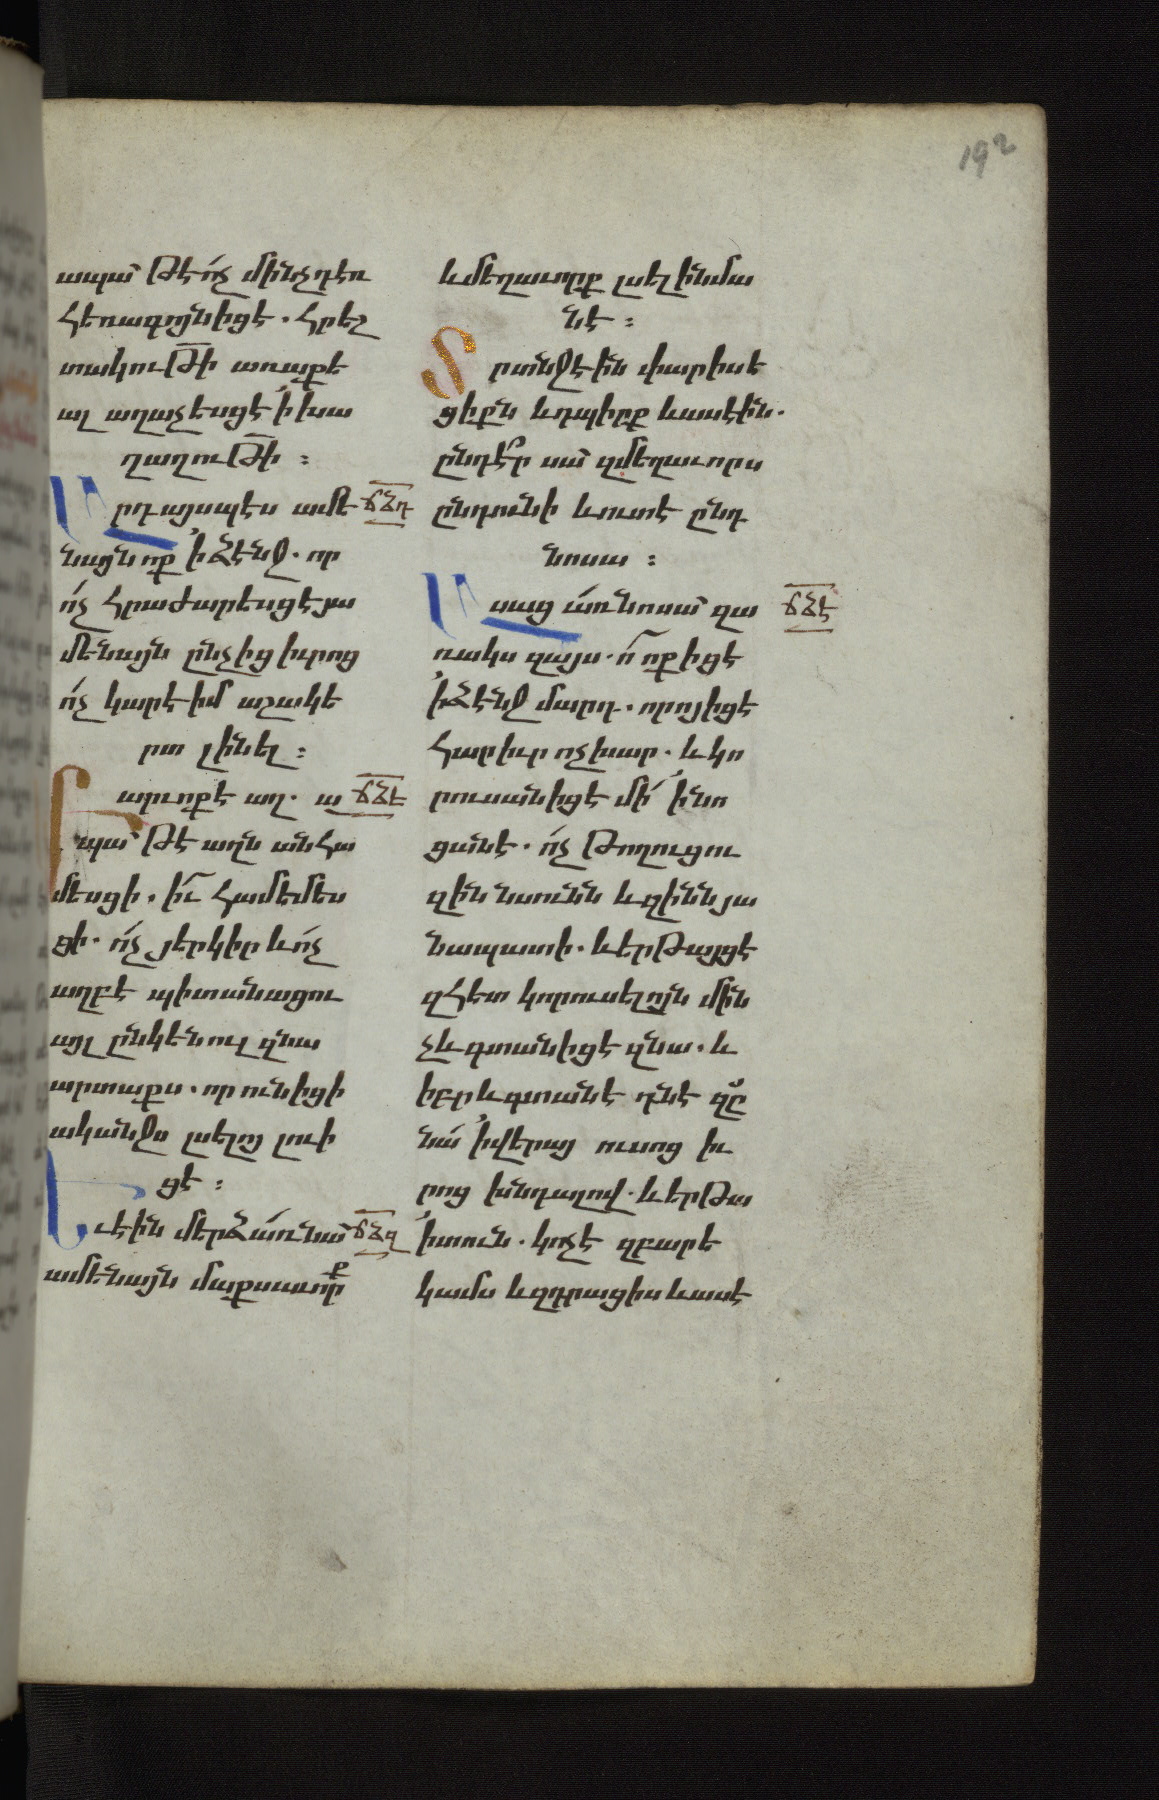 192
ապա՝ թէ ո՛չ մինչդեռ
հեռագոյն իցէ. հրեշ
տակութի առաքե
ալ աղաչեսցէ ի խա
ղաղութի :
Արդ այսպէս ամե ՃՁդ
նայն ոք ի ձէնջ. որ
ո՛չ հրաժարեսցէ յա
մենայն ընչից իւրոց
ո՛չ կարէ իմ աշակե
րտ լինել :
Բարւոք է աղ. ա ՃՁե
պա՝ թէ աղն անհա
մեսցի. իւ համեմես
ցի. ո՛չ յերկիր և ո՛չ
յաղբէ պիտանացու
այլ ընկենուլ զնա
արտաքս. որ ունիցի
ականջս լսելոյ լուի
ցէ :
Եւ էին մերձ առ նա՝ ՃՁզ
ամենայն մաքսաւորք
և մեղաւորք լսել ի նմա
նէ :
Տրտնջէին փարիսե
ցիքն և դպիրք և ասէին.
ընդէ՞ր սա՝ զմեղաւորս
ընդունի և ուտէ ընդ
նոսա :
Ասաց առ նոսա՝ զա ՃՁէ
ռակս զայս. ո՞ ոք իցէ
ի ձէնջ մարդ. որոյ իցէ
հարիւր ոչխար. և կո
րուսանիցէ մի՛ ի նո
ցանէ. ո՛չ թողուցու
զիննսունն և զիննն յա
նապատի. և երթայցէ
զհետ կորուսելոյն մին
չև գտանիցէ զնա. և
իբրև գտանէ դնէ զը
նա՛ ի վերայ ուսոց իւ
րոց խնդալով. և երթա
ի տուն. կոչէ զբարե
կամս և զդրացիս և ասէ